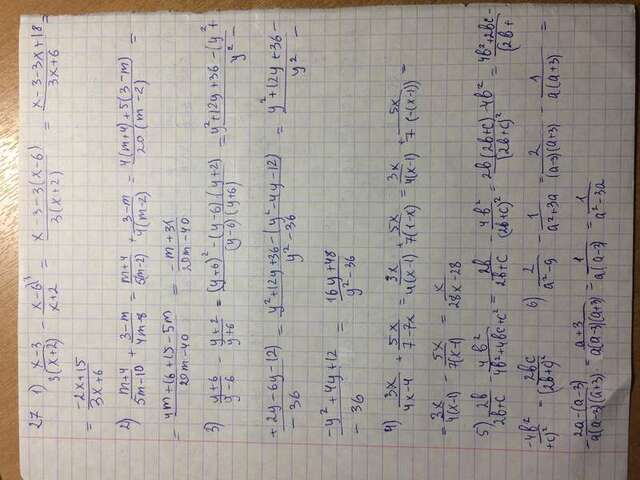 27 1) (x-3)/(3(x+2)) - (x-6)/(x+2) ^3 = (x-3-3(x-6))/(3(x+2)) = (x-3-3x+18)/(3x+6) =
= (-2x+15)/(3x+6)
2) (m+4)/(5m-10) + (3-m)/(4m-8) = (m+4)/(5(m-2)) + (3-m)/(4(m-2)) = (4(m+4)+5(3-m))/(20(m-2)) =
= (4m+16+15-5m)/(20m-40) = (-m+31)/(20m-40)
3) (y+6)/(y-6) - (y+2)/(y+6) = ((y+6)²-(y-6)(y+2))/((y-6)(y+6)) = (y²+12y+36-(y²+)/(y²-
(+2y-6y-12)/(-36) = (y²+12y+36-(y²-4y-12))/(y²-36) = (y²+12y+36-)/(y²-
(-y²+4y+12)/(-36) = (16y+48)/(y²-36)
4) 3x/(4x-4) + 5x/(7-7x) = 3x/(4(x-1)) + 5x/(7(1-x)) = 3x/(4(x-1)) + 5x/(7(-(x-1))) =
= 3x/(4(x-1)) - 5x/(7(x-1)) = x/(28x-28)
5) 2b/(2b+c) - 4b²/(4b²+4bc+c²) = 2b/(2b+c) - 4b²/(2b+c)² = (2b(2b+c)-4b²)/(2b+c)² = (4b²+2bc-)/(2b+
(-4b²)/(+c)² = 2bc/(2b+c)² 6) 2/(a²-9) - 1/(a²+3a) = 2/((a-3)(a+3)) - 1/(a(a+3)) =
= (2a-(a-3))/(a(a-3)(a+3)) = (a+3)/(a(a-3)(a+3)) = 1/(a(a-3)) = 1/(a²-3a)